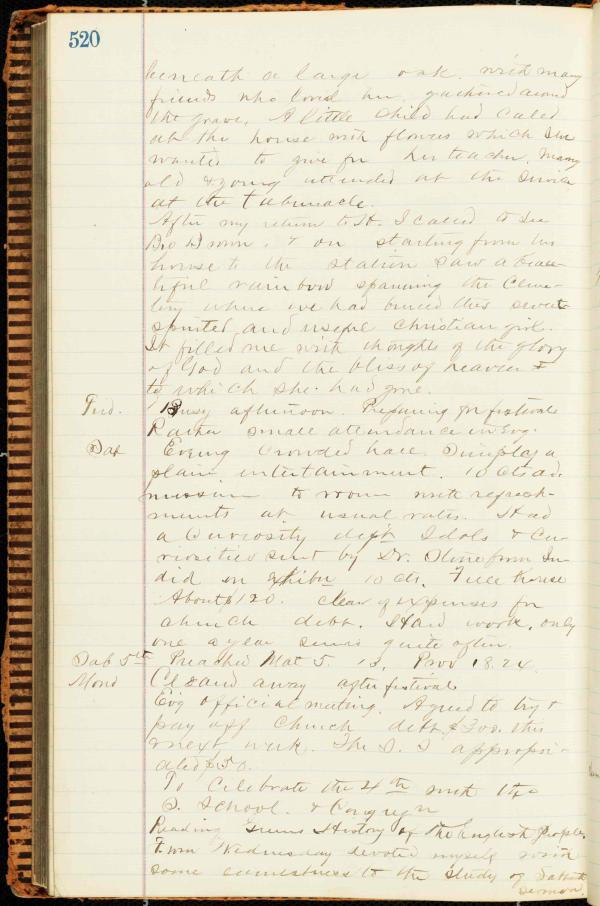 520
beneath a large oak. with many
friends who loved her, gathered around
the grave. A little child had called
at the house with flowers which she
wanted to give for her teacher. Many
old & young attended at the service
at the tabernacle.
After my return to H. I called to see
Bro Brown. & on starting from his
house to the station saw a beau-
tiful rainbow spanning the Ceme-
tery where we had buried this sweet
spirited and useful christian girl.
It filled me with thoughts of the glory
of God and the bliss of heaven
to which she had gone.
Frid. Busy afternoon Preparing for festival
Rather small attendance in Evg.
Sat Evening Crowded hall. Simply a
plain entertainment. 10 cts ad.
mission to room with refresh-
ments at usual rates. Had
a Curiosity dept Idols & Cu-
riosities sent by Dr. from In
did on exhibn 10 cts. Full house
About $120. clear of expenses for
church debt. Hard work. only
one a year seems quite often.
Sab 5th Preached Mat 5. 13. Prov 18.24.
Mond Cleand away after festival
Evg official meeting. Agreed to try &
pay off Church debt $300. this
& next week. The S. S appropri-
ated $50.
To Celebrate the 4th with the
S. School. & Congregn
Reading Greens History of The English People.
From Wednesday devoted myself with
some earnestness to the study of Sabbath
sermon